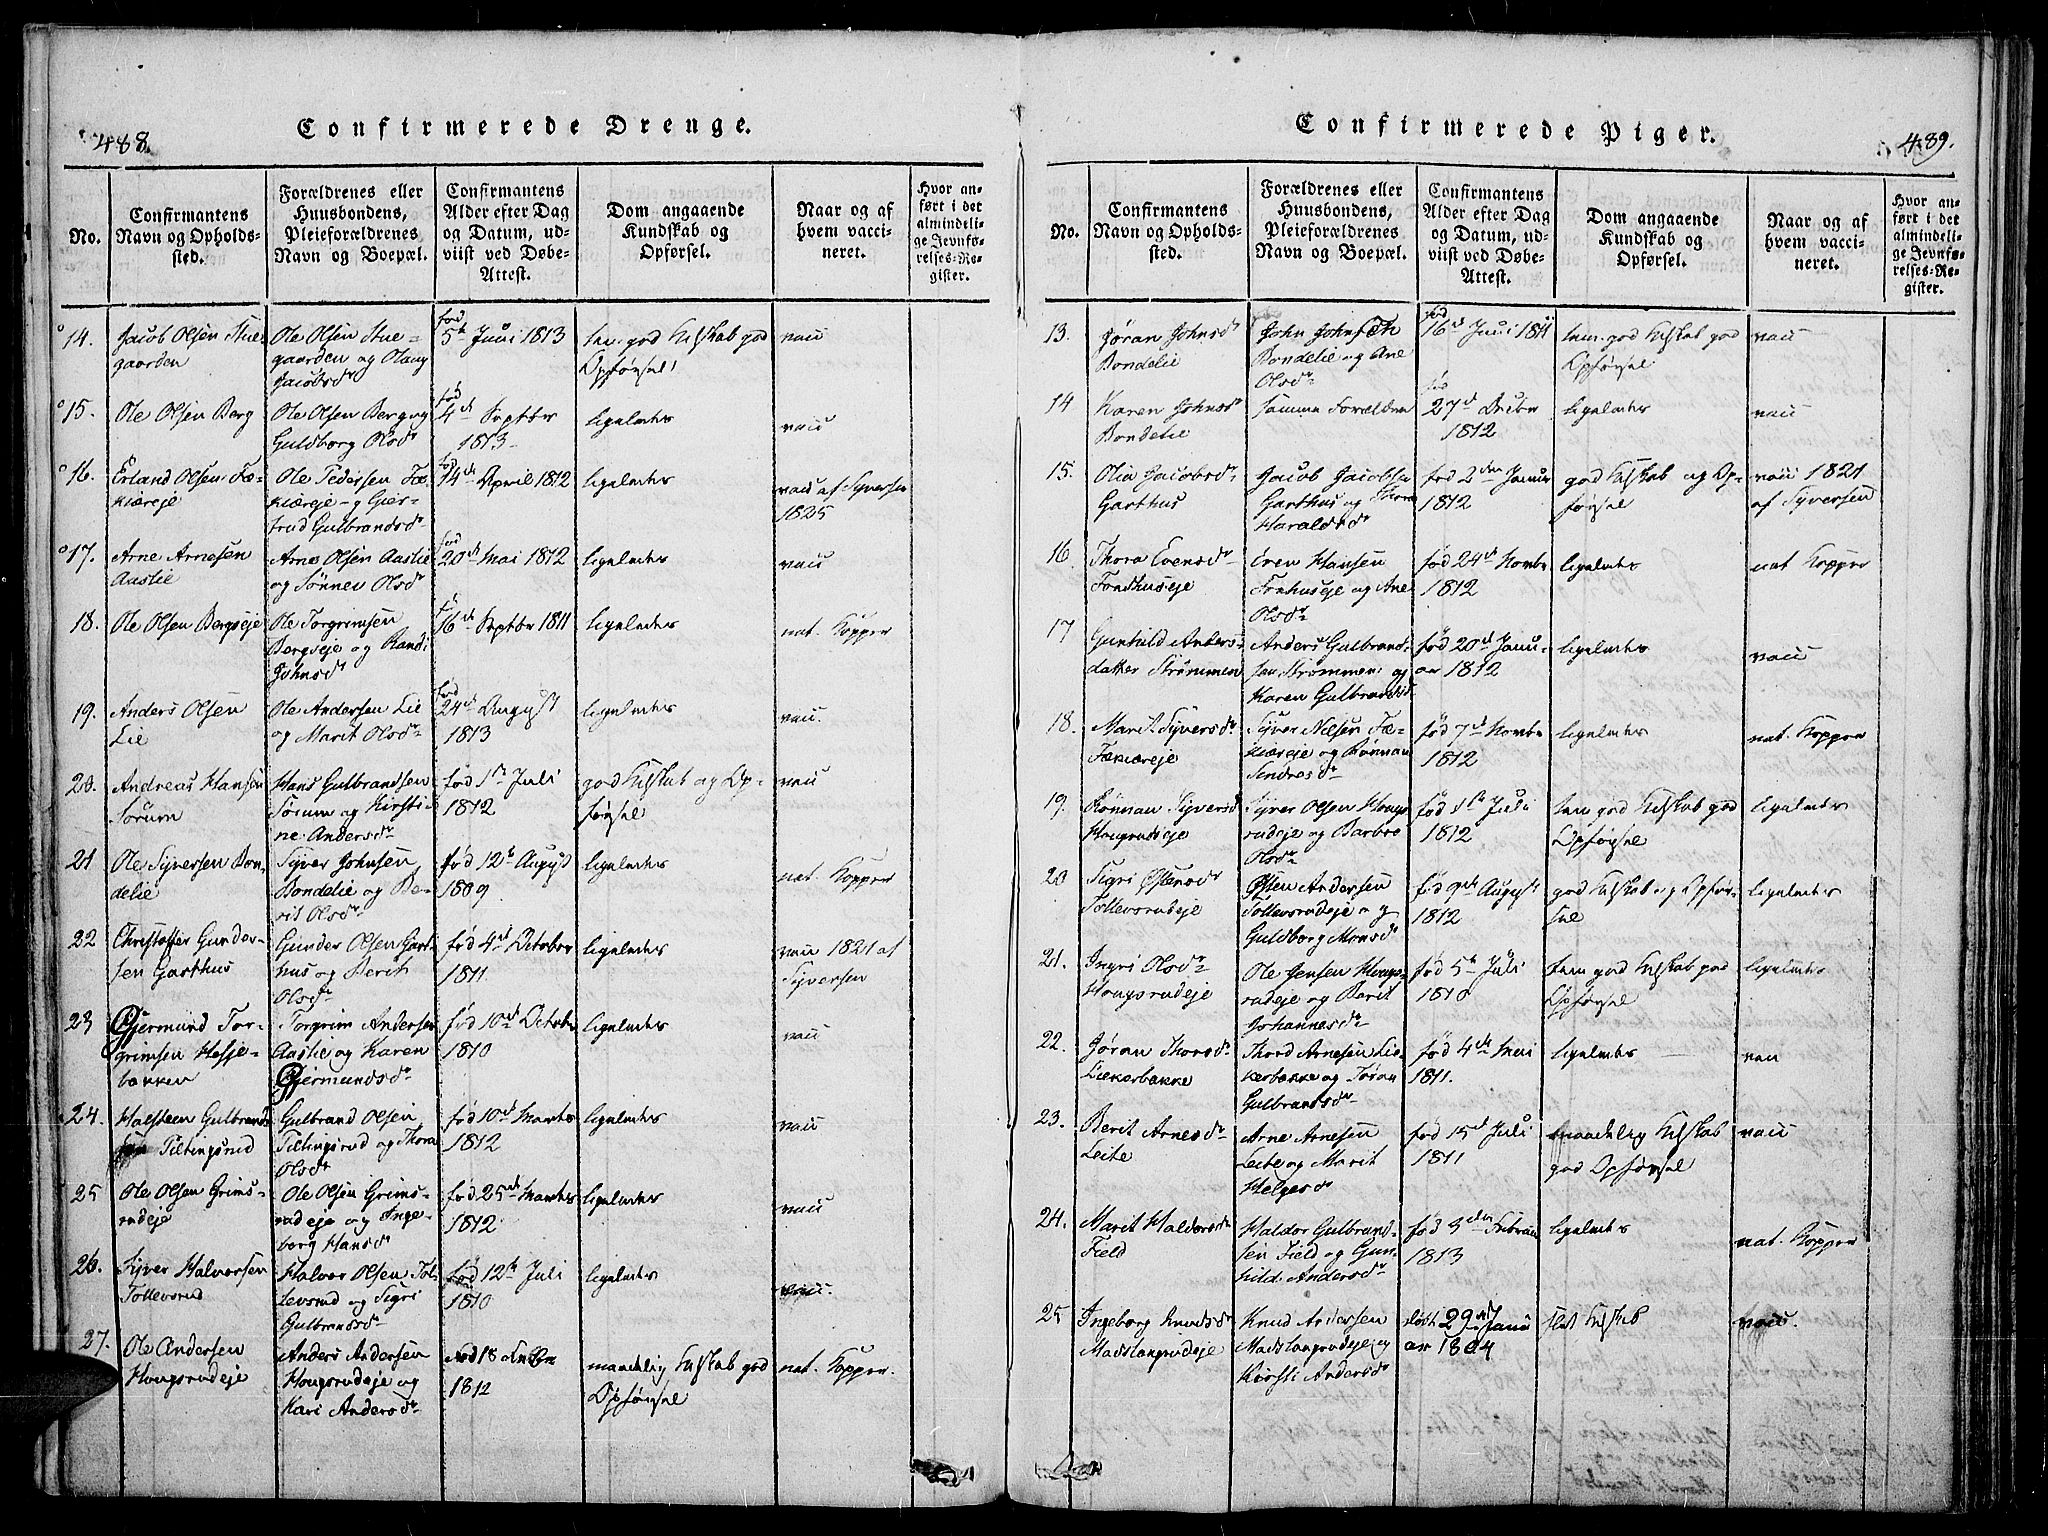 488.
Confirmerede Drenge.
No.
Confirmantens
Navn og Opholds-
sted.
Forældrenes eller
Huusbondens,
Pleieforældrenes
Navn og Boepæl.
Confirmantens
Alder efter Dag
og Datum, ud-
viist ved Døbe-
Attest.
Dom angaaende
Kundskab og
Opførsel.
Naar og af
hvem vacci-
neret.
Hvor an-
ført i det
almindeli-
ge Jevnfø-
relses-Re-
gister.
14.
Jacob Olsen
gaarden
Ole Olsen
gaarden og
Jacobsdr
fød
5te Juni 1813
god Kdskab god
Opførsel
vacc
15.
Ole Olsen Berg
Ole Olsen Berg og
Guldborg Olsdr
fød
4de Septbr
1813
ligeledes
vacc
16.
Erland Olsen Fæ-
kiæreje
Ole Pedersen Fæ-
kiæreje og Gjer-
trud Gulbrandsdr
fød
14de April 1812
ligeledes
vacc af Syversen
1825
17.
Arne Arnesen
Aaslie
Arne Olsen Aaslie
og Sønnev Olsdr
fød
20de Mai 1812
ligeledes
vacc
18.
Ole Olsen Bergseje
Ole Torgrimsen
Bergseje og Randi
Johnsdr
f
16de Septbr 1811
ligeledes
nat. Kopper
19.
Anders Olsen
Lie
Ole Andersen Lie
og Marit Olsdr
fød
24de August
1813
ligeledes
vacc.
20.
Andreas Hansen
Sørum
Hans Gulbrandsen
Sørum og Kirsti-
ne Andersdr
fød 1ste Juli
1812
god Kdskab og Op-
førsel
vacc
21
Ole Syversen Bon-
delie
Syver Johnsen
Bondelie og Be-
rit Olsdr
fød 12te August
1809
ligeledes
nat. Kopper
22
Christoffer Gunder-
sen Garthus
Gunder Olsen Gart-
hus og Berit
Olsdr
fød 4de October
1811
ligeledes
vacc 1821 af
Syversen
23
Gjermund Tor-
grimsen Hesje-
bakken
Torgrim Andersen
Aaslie og Karen
Gjermundsdr
fød 10de Octobr
1810
ligeledes
vacc
24.
Halsteen Gulbrand-
sen Tiltingsrud
Gulbrand Olsen
Tiltingsrud og Thora
Olsdr
fød 10de Marts
1812
ligeledes
vacc
25
Ole Olsen Grims-
rudeje
Ole Olsen Grims-
rudeje og Inge-
borg Hansdr
fød 25de Marts
1812
ligeledes
vacc
26.
Syver Halvorsen
Tollevsrud
Halvor Olsen Tol-
levsrud og Sigri
Gulbrandsdr
fød 12te Juli
1810
ligeledes
vacc.
27.
Ole Andersen
Hougsrudeje
Anders Andersen
Hougsrudeje og
Kari Andersdr
fød 18
1812
maadelig Kdskab god
Opførsel
nat. Kopper.
489.
Confirmerede Piger.
No.
Confirmantens
Navn og Opholds-
sted.
Forældrenes eller
Huusbondens,
Pleieforældrenes
Navn og Boepæl.
Confirmantens
Alder efter Dag
og Datum, ud-
viist ved Døbe-
Attest.
Dom angaaende
Kundskab og
Opførsel.
Naar og af
hvem vacci-
neret.
Hvor an-
ført i det
almindeli-
ge Jevnfø-
relses-Re-
gister.
13.
Jøran Johnsdr
Bondelie
John Johnsen
Bondelie og Ane
Olsdr
fød
16de Juni 1811
tem. god Kdskab god
Opførsel
vacc
14
Karen Johnsdr
Bondelie
samme Forældre
fød
27de Decbr
1812
ligeledes
vacc
15.
Olia Jacobsdr
Garthus
Jacob Jacobsen
Garthus og Thora
Haraldsdr
fød 2den Januar
1812
god Kdskab og Op-
førsel
vacc 1821
af Syversen
16
Thora Evensdr
Fonhuseje
Even Hansen
Fonhuseje og Ane
Olsdr
fød 24de Novbr
1812
ligeledes
nat Kopper
17
Gunhild Anders-
datter Strømmen
Anders Gulbrand-
sen Strømmen og
Karen Gulbrandsdr
fød 20de Janu-
ar 1812
ligeledes
vacc
18.
Marit Syversdr
Fækiæreje
Syver Nilsen Fæ-
kiæreje og Rønnau
Sindresdr
fød 7de Novbr
1812
ligeledes
nat. Kopper
19.
Rønnau Syversdr
Hougsrudeje
Syver Olsen Hougs-
rudeje og Barbro
Olsdr
fød 1ste Juli
1812
tem god Kdskab god
Opførsel
ligeledes
20
Sigri Østensdr
Tollevsrudeje
Østen Andersen
Tollevsrudeje og
Guldborg Monsdr
fød 9de August
1812
god Kdskab og Opfør-
sel
ligeledes
21.
Ingri Olsdr
Hougsrudeje
Ole Jensen Hougs-
rudeje og Berit
Johannesdr
fød 5te Juli
1810
tem god Kdskab god
Opførsel
ligeledes
22.
Jøran Thorsdr
Liekerbakke
Thord Arnesen Lie-
kerbakke og Jøran
Gulbrandsdr
fød 4de Mai
1811.
ligeledes
vacc
23.
Berit Arnesdr
Leite
Arne Arnesen
Leite og Marit
Helgesdr
fød 15de Juli
1811
maadelig Kdskab
god Opførsel
vacc
24.
Marit Haldorsdr
Field
Haldor Gulbrand-
sen Field og Gun-
hild Andersdr
fød 3den Februar
1813
ligeledes
nat. Kopper
25
Ingeborg Knudsdr
Madslangrudeje
Knud Andersen
Madslangrudeje og
Kirsti Andersdr
døbt 29de Janu-
ar 1804
slet Kdskab
vacc.